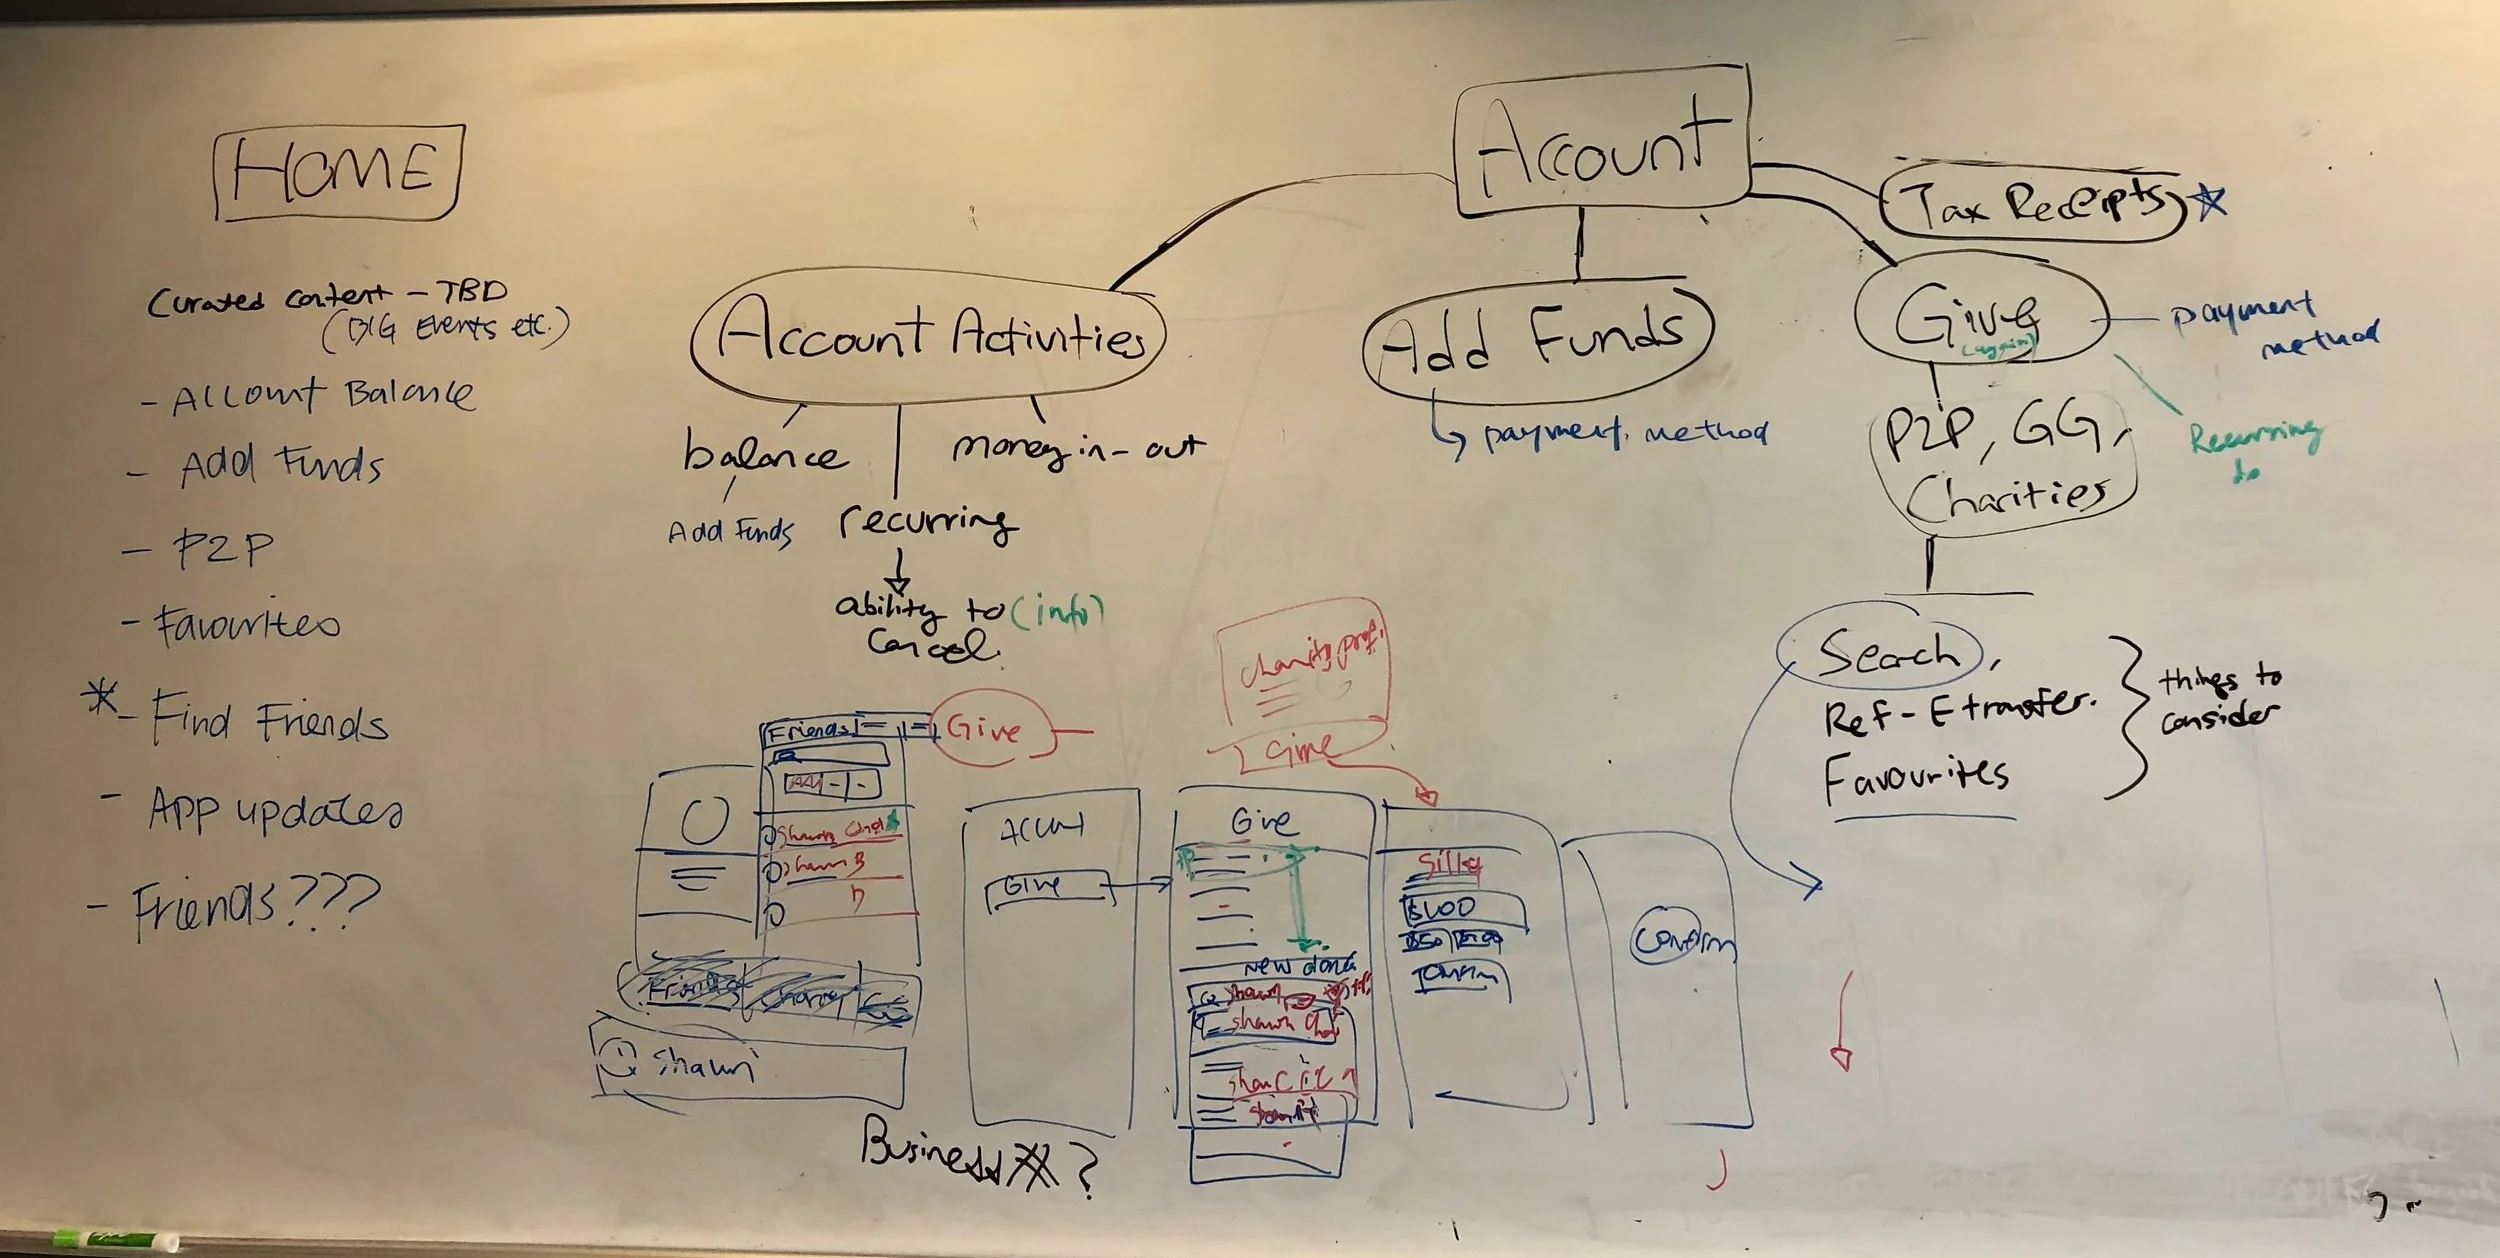 HOME
Curated content - TBD
(BIG Events etc.)
- Account Balance
- Add Funds
- P2P
- Favourites
* - Find Friends
- App updates
- Friends???
Account
Tax Receipts *
Account Activities
balance
Add Funds
money in - out
recurring
ability to (info)
cancel
Add Funds
payment method
Give
(again)
payment
method
Recurring
to
P2P, GG,
Charities
Search,
Ref - E transfer.
Favourites
things to
consider
Friends
Give
Shawn
Shawn B
Friends
Shawn
Business ?
Charity prof.
Give
Give
Give
New
Shawn
Shawn
$100
$50
Confirm
Confirm